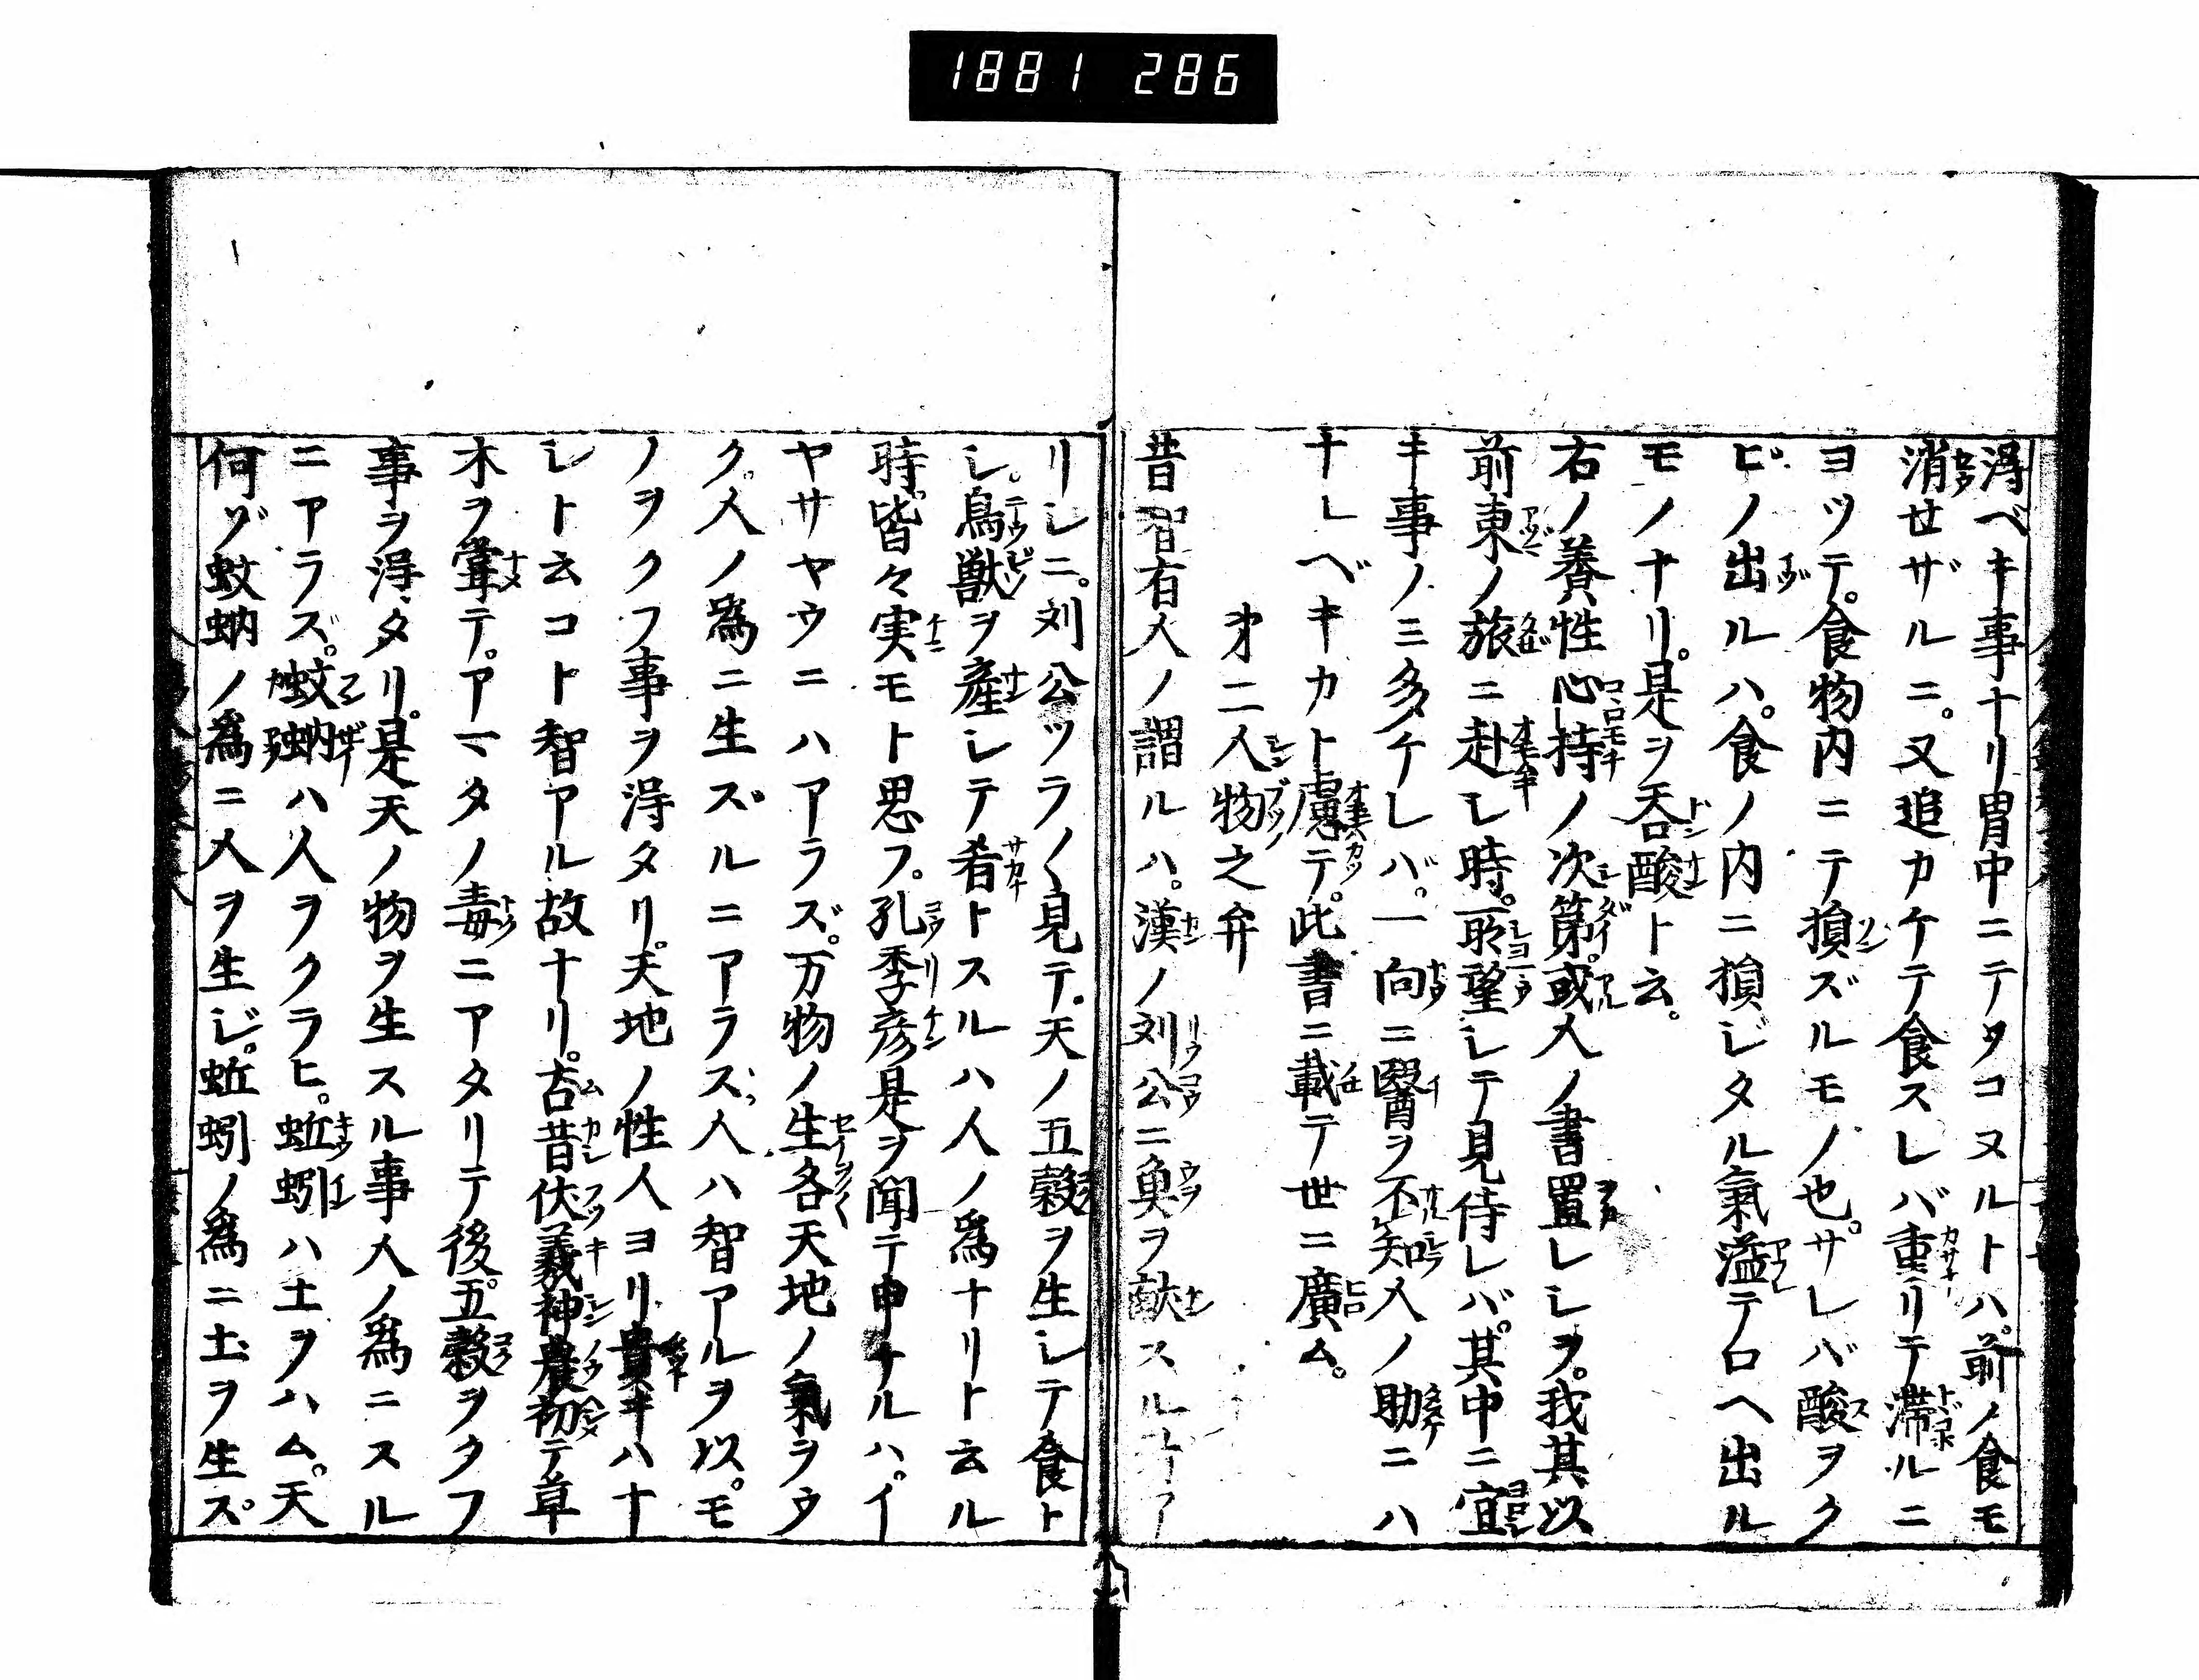 1881 286
得ベキ事ナリ胃中ニテタコヌルトハ。前ノ食モ
消せザルニ。又追カケテ食スレバ重リテ滞ルニ
ヨツテ。食物内ニテ損ズルモノ也。サレバ酸ヲク
ビノ出ルハ。食ノ内ニ損ジタル氣溢テロヘ出ル
モノナリ。是ヲ呑酸ト云。
右ノ養性心持ノ次第。或人ノ書置レシヲ。我其以
前東ノ旅ニ赴し時。所望シテ見侍レバ。其中ニ宜
キ事ノミ多ケレバ。一向ニ醫ヲ不知人ノ助ニハ
ナルベキカト慮テ。此書ニ載テ世ニ廣ム。
第二人物之弁
昔智有人ノ謂ルハ。漢ノ刘公ニ魚ヲ献スル
リシニ。刘公ツラ〱見テ。天ノ五穀ヲ生シテ食ト
シ。鳥獣ヲ産シテ肴トスルハ人ノ為ナリト云ル
時。皆々実モト思フ。孔季彦是ヲ聞テ申ケルハ。イ
ヤサヤウニハアラズ。万物ノ生各天地ノ氣ヲウ
ク。人ノ為ニ生ズルニアラス。人ハ智アルヲ以。モ
ノヲクフ事ヲ得タリ。天地ノ性人ヨリ貴キハナ
シト云コト智アル故ナリ。古昔伏義神農初テ草
木ヲ甞テ。アマタノ毒ニアタリテ後。五穀ヲクフ
事ヲ得タリ。是天ノ物ヲ生スル事人ノ為ニスル
ニアラズ。蚊蚋ハ人ヲクラヒ。蚯蚓ハ土ヲハム。天
何ゾ蚊蚋ノ為ニ人ヲ生じ。蚯蚓ノ為ニ土ヲ生ズ